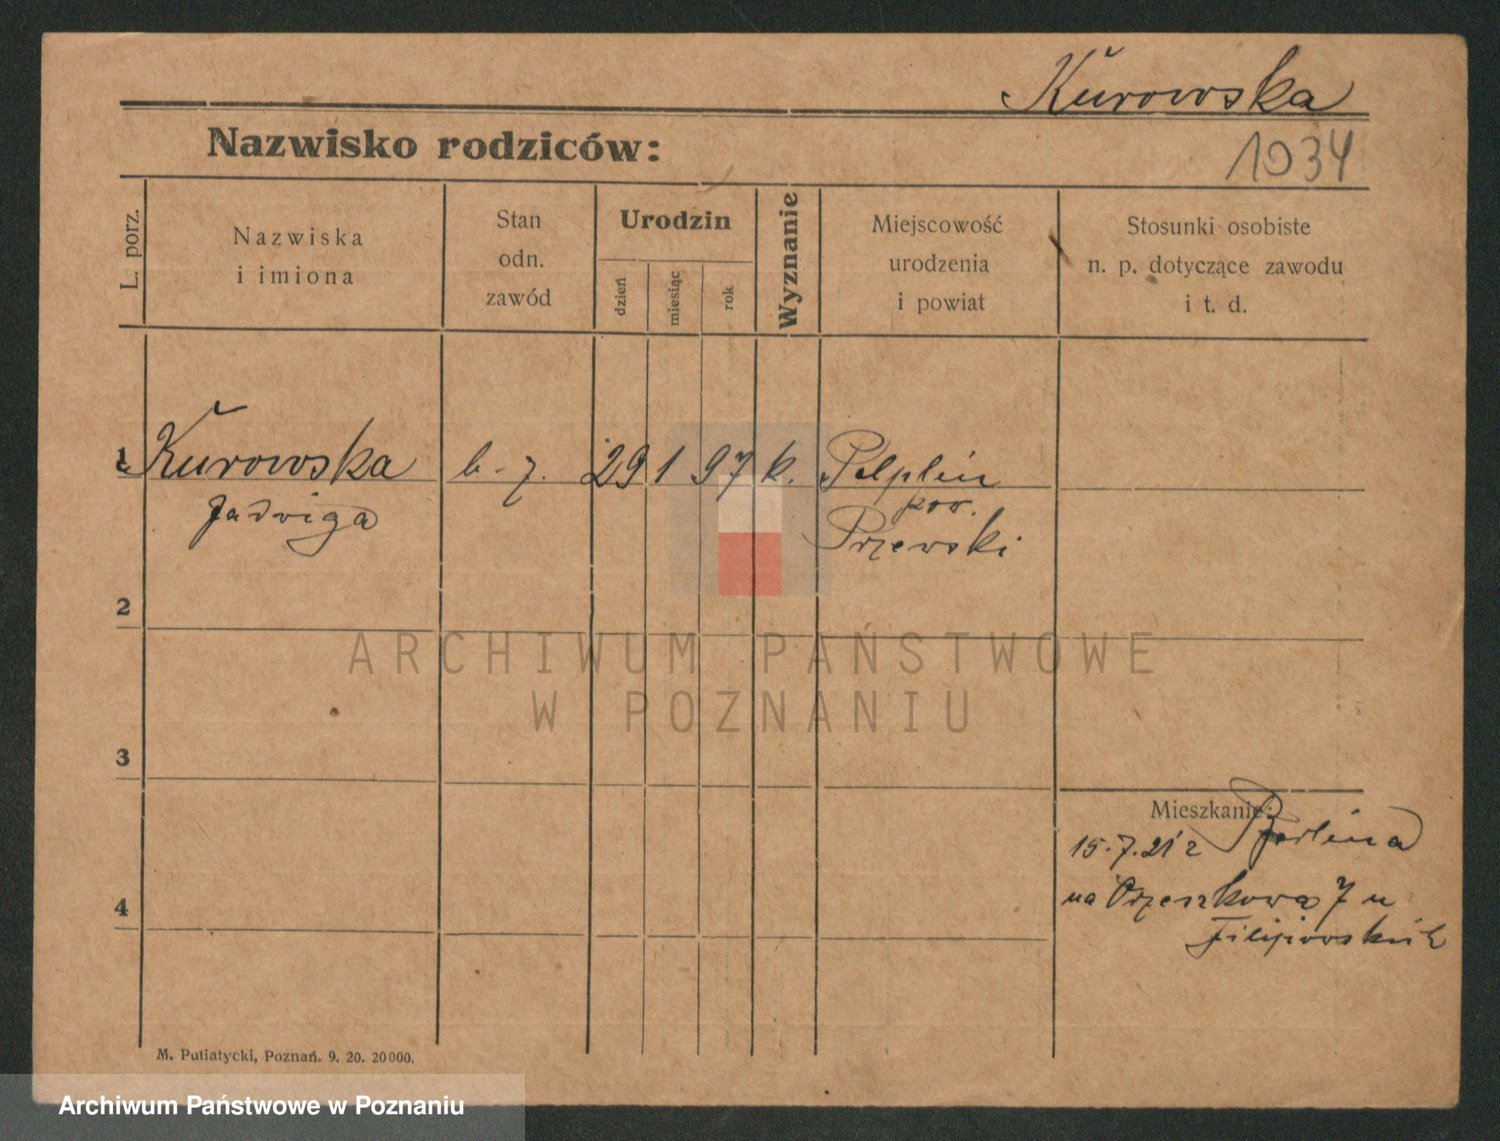 Kurowska
Nazwisko rodziców:
1034
L. porz.
Nazwiska
i imiona
Stan
odn.
zawód
Urodzin
dzień
miesiąc
rok
Wyznanie
Miejscowość
urodzenia
i powiat
Stosunki osobiste
n. p. dotyczące zawodu
i t. d.
1 Kurowska b-z. 29 1 97 k. Pelplin
Jadwiga pow.
2
3
4
Mieszkanie:
15.7.21 z Berlina
na Orzeszkowa 7 u
M. Putiatycki, Poznań. 9. 20. 20000.
ARCHIWUM PAŃSTWOWE
W POZNANIU
Archiwum Państwowe w Poznaniu